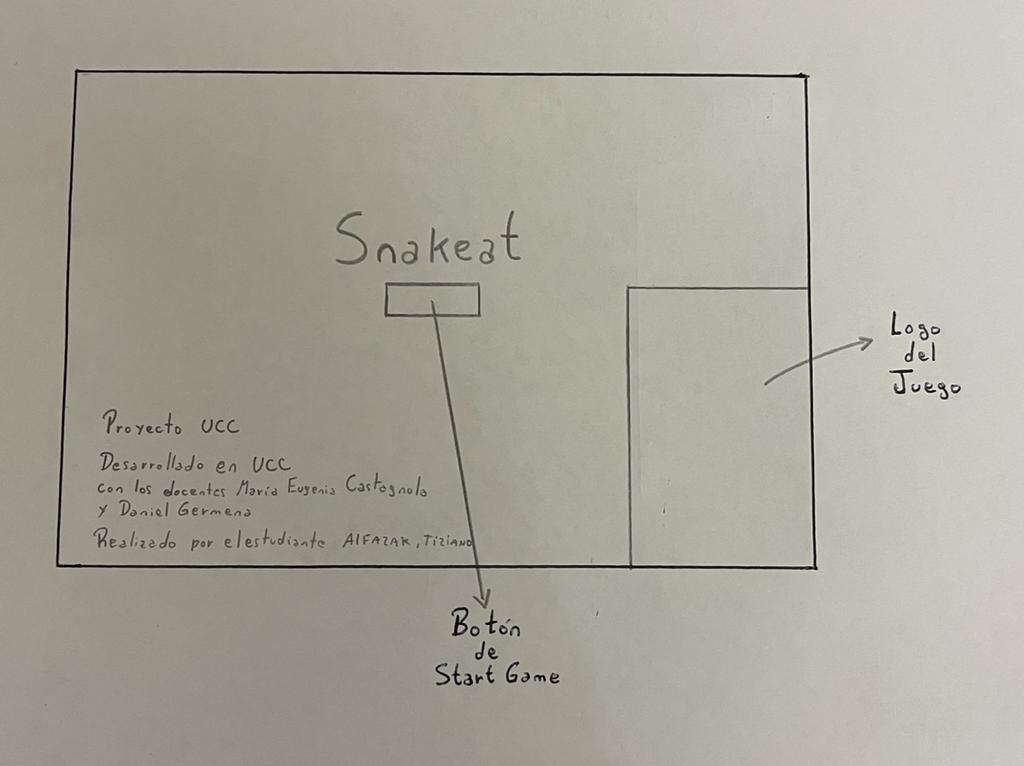 Snakeat
Logo
del
Juego
Proyecto UCC
Desarrollado en UCC
con los docentes María Eugenia Castagnola
y Daniel Germena
Realizado por el estudiante AlFAZAK, TiZiANO
Botón
de
Start Game